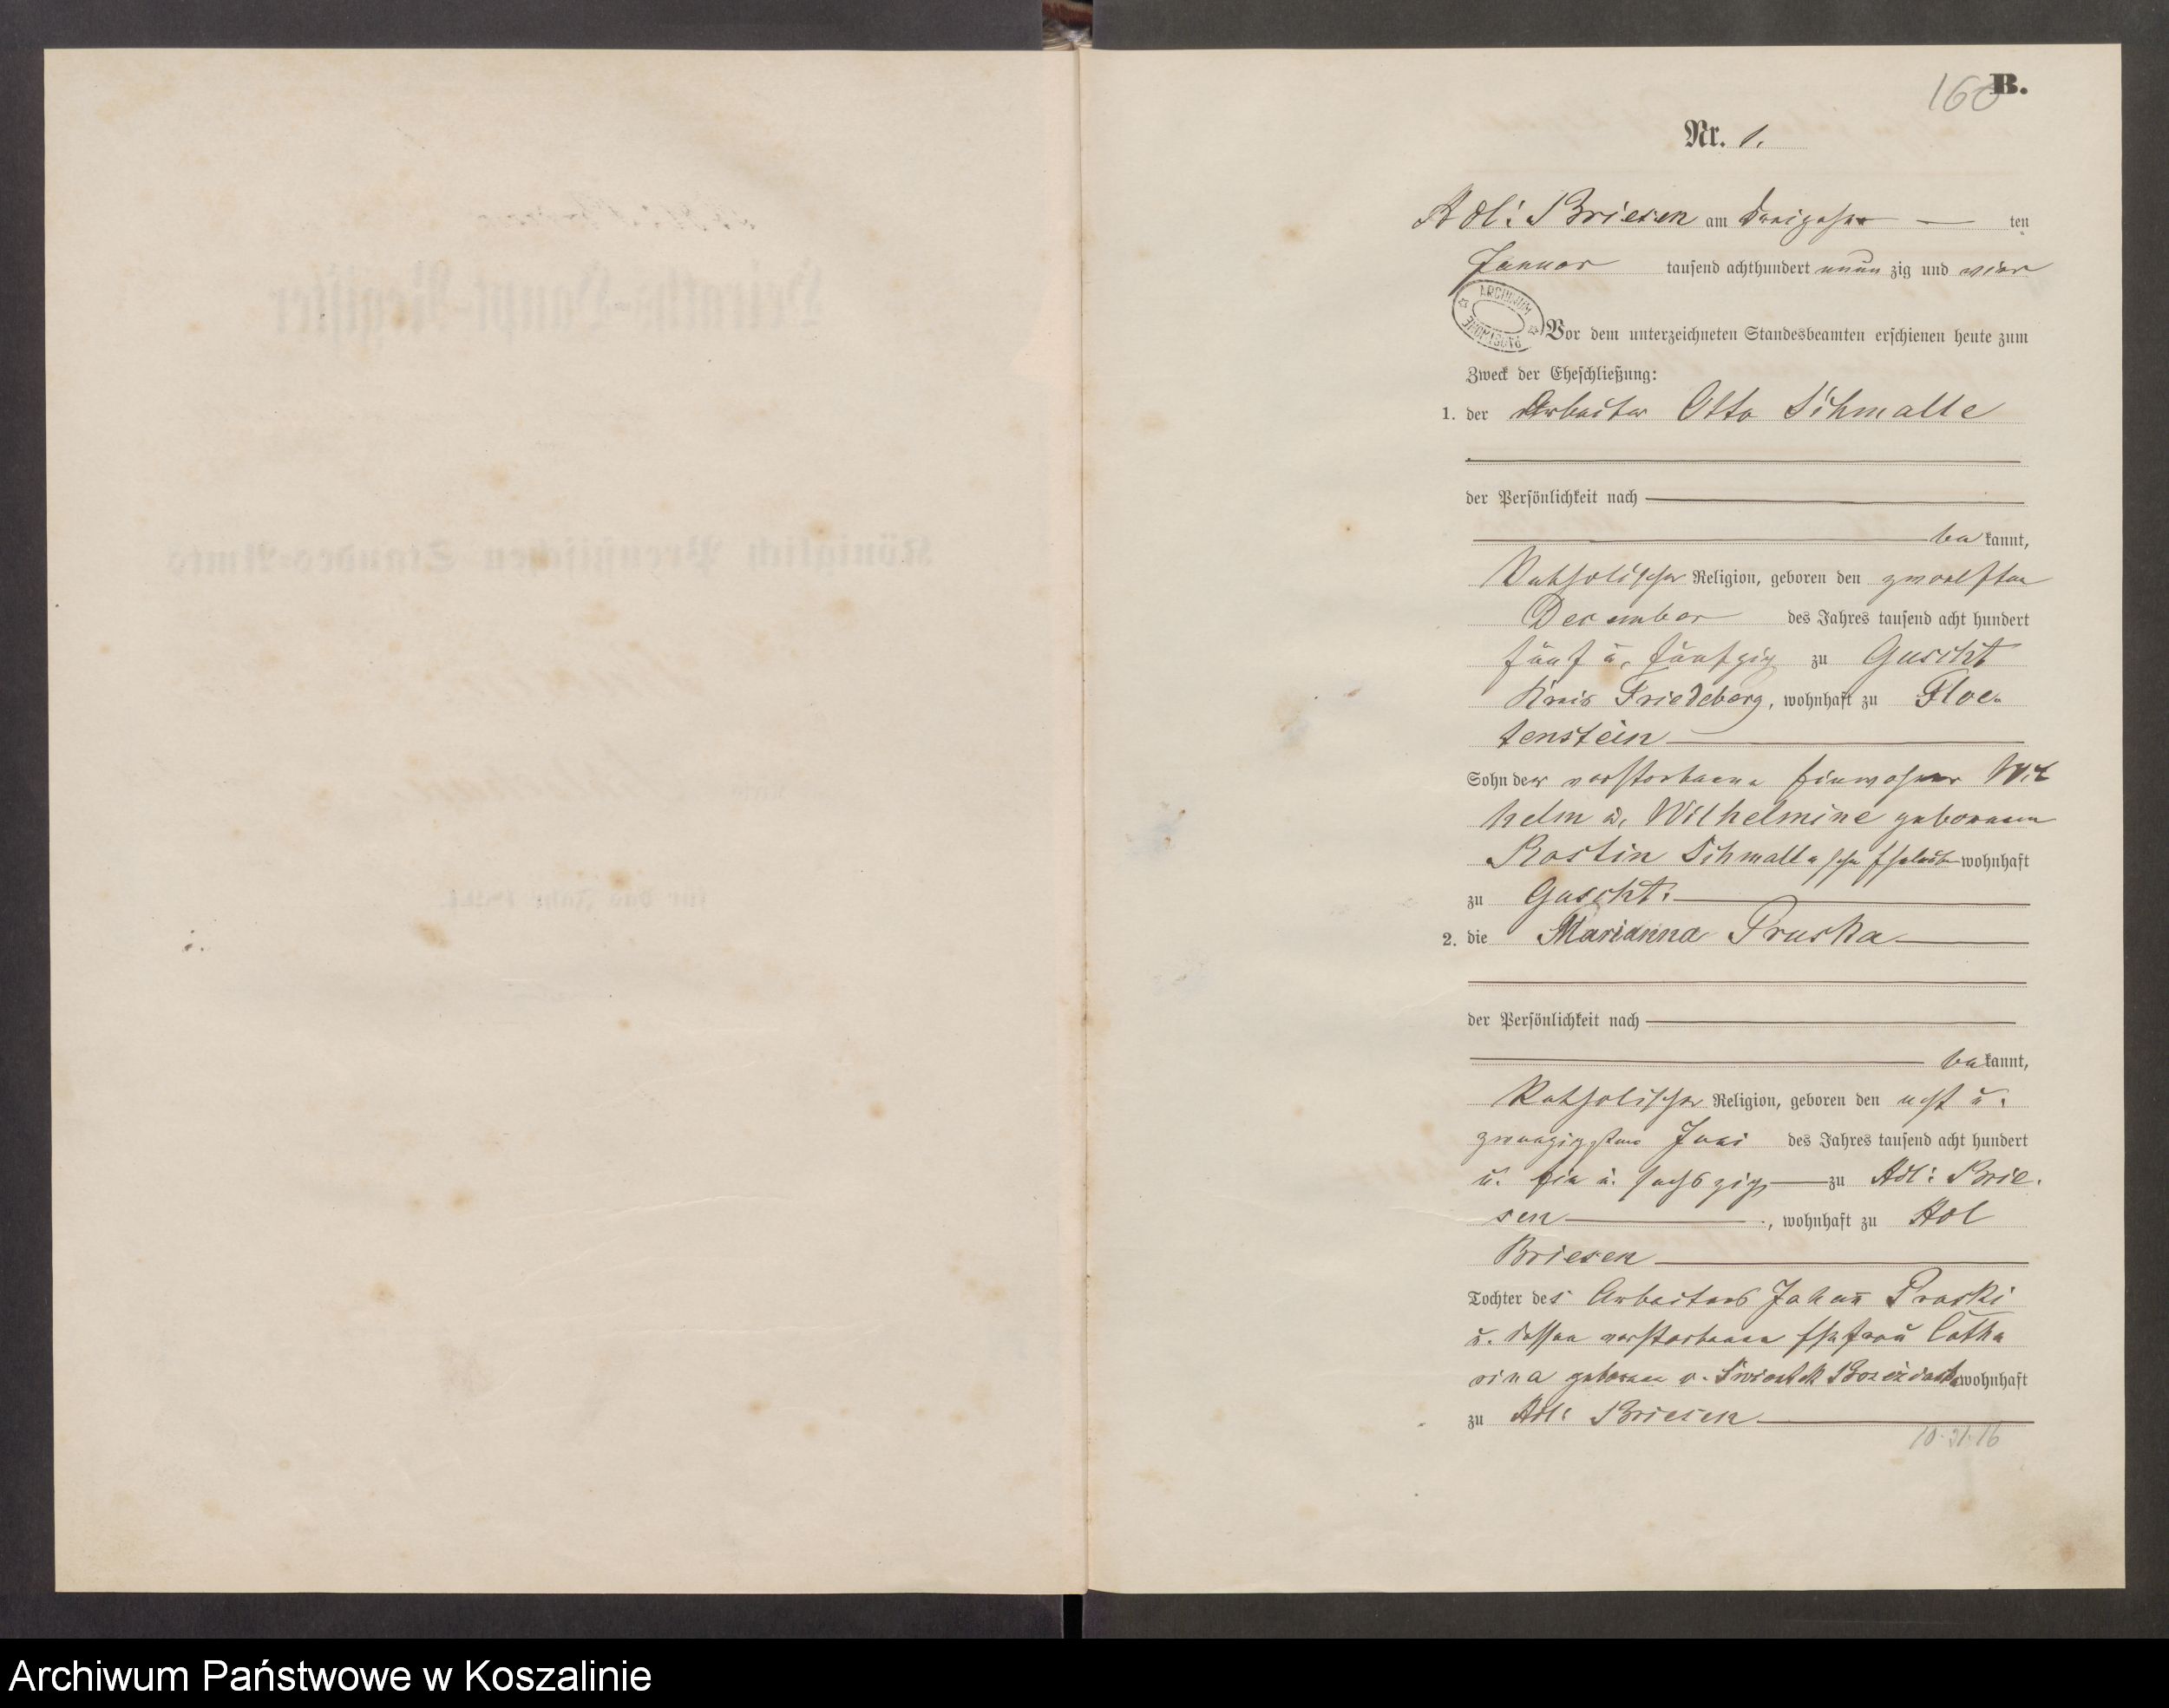 160 B.
Nr. 1.
Adl: Briesen am dreizehn — ten
Januar tausend achthundert neun zig und vier
ARCHIWUM
PAŃSTWOWE
Vor dem unterzeichneten Standesbeamten erschienen heute zum
Zweck der Eheschließung:
1. der Arbeiter Otto Schmalle
der Persönlichkeit nach
be kannt,
Katholischer Religion, geboren den zwoelften
December des Jahres tausend acht hundert
fünf u. fünfzig zu Guscht
Kreis Friedeberg, wohnhaft zu Floe-
tenstein
Sohn der verstorbenen Einwohner Wil
helm u. Wilhelmine geborenen
Rostin Schmalle schen Eheleute wohnhaft
zu Guscht.
2. die Marianna Pruska
der Persönlichkeit nach
be kannt,
Katholischer Religion, geboren den acht u.
zwanzigsten Juni des Jahres tausend acht hundert
u. ein u. sechszig zu Adl: Brie-
sen, wohnhaft zu Adl
Briesen
Tochter des Arbeiters Johann Pruski
u. dessen verstorbenen Ehefrau Catha
rina geborene v. wohnhaft
zu Adl: Briesen
10.31.16
Archiwum Państwowe w Koszalinie